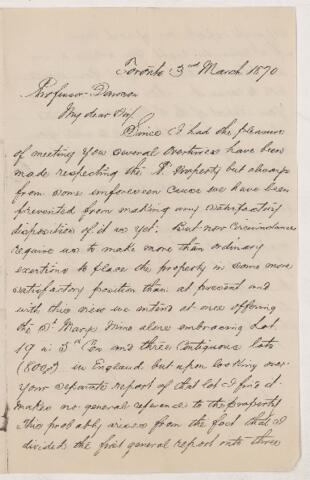 Toronto 3rd March 1870
Professor Dawson
My dear Sir
Since I had the pleasure
of meeting you several overtures have been
made respecting the P. Property but always
from some unforeseen cause we have been
prevented from making any satisfactory
disposition of it as yet. But now circumstances
require us to make more than ordinary
exertions to place the property in some more
satisfactory position than at present and
with this view we intend at once offering
the St Marys Mine alone embracing Lot
19 in 3rd Con and three contiguous lots
in England but upon looking over
your separate report of that lot I find it
makes no general reference to the property
this probably arises from the fact that I
divided the first general report into three